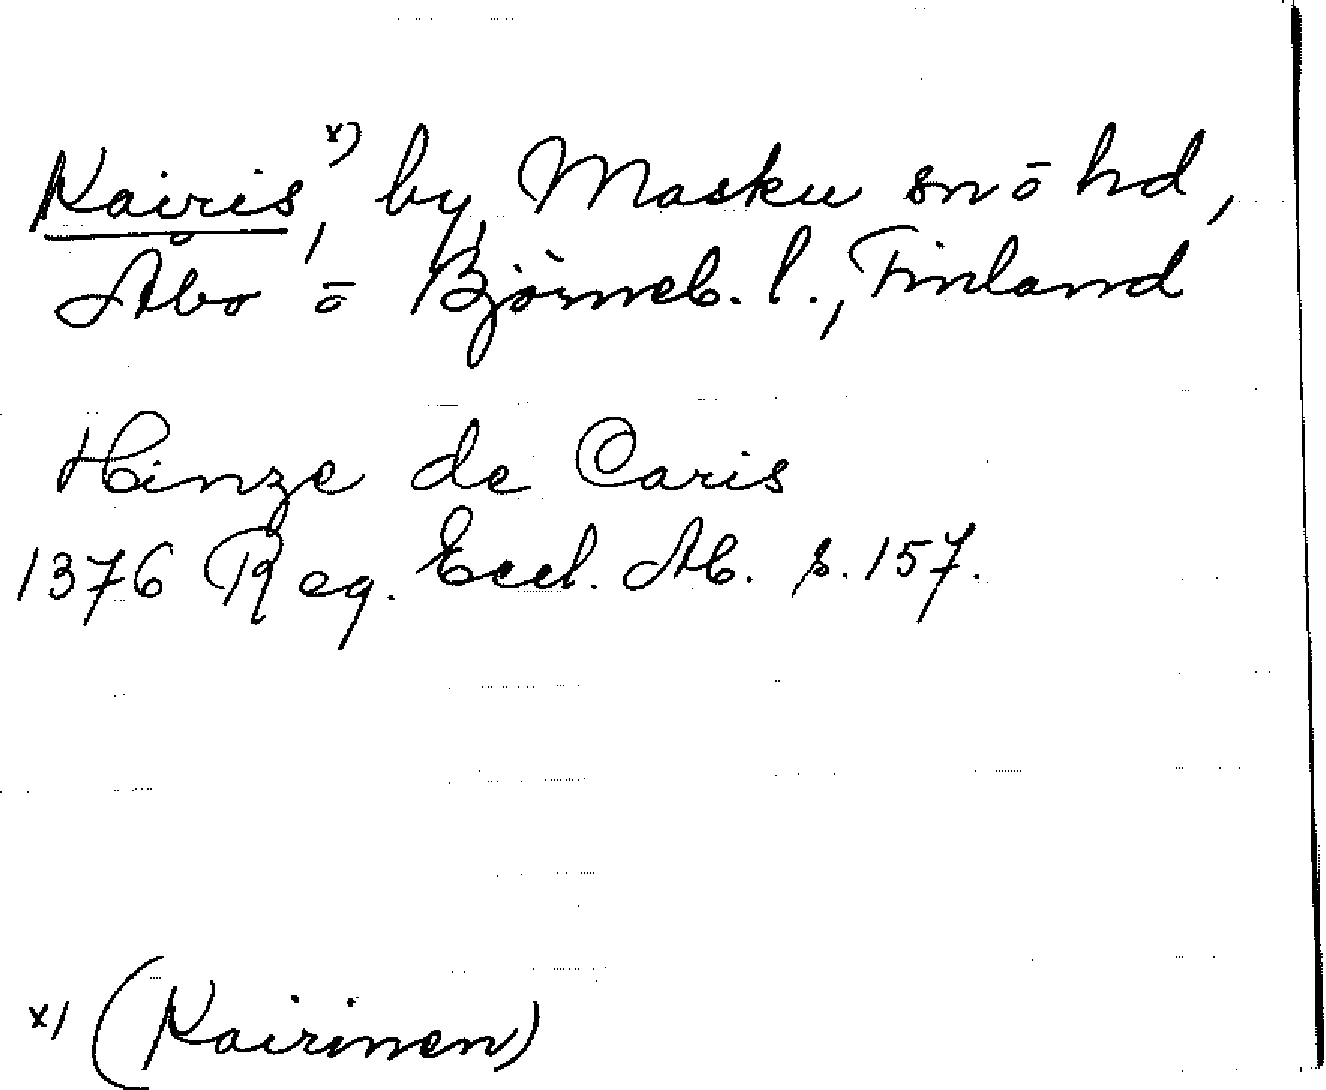 Kairis, x) by, Masku sn ō hd,
Åbo ō Björneb. l., Finland
Hinze de Caris
1376 Reg. Eccl. Ab. s. 157.
x) (Kairinen)